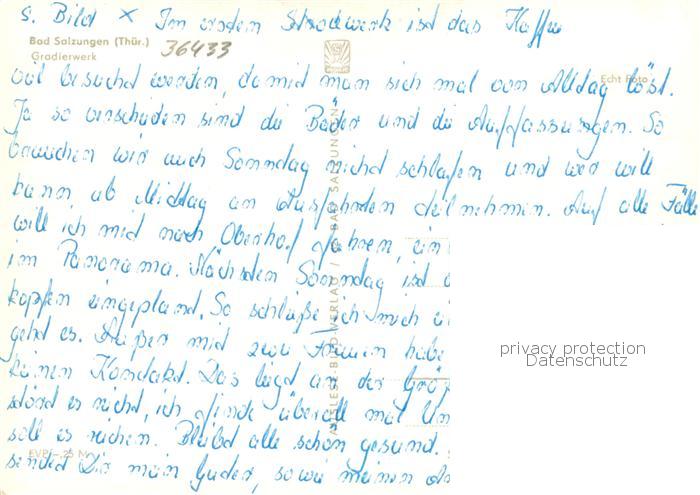 s. Bild x Im ersten Stockwerk ist das Kaffee
Bad Salzungen (Thür.)
Gradierwerk
36433
Echt Foto
viel besucht werden, damit man sich mal vom Alltag löst.
Ja so verschieden sind die Bäder und die Auffassungen. So
brauchen wir auch Sonntag nicht schlafen und wer will
kann ab Mittag an Ausfahrten teilnehmen. Auf alle Fälle
will ich mit nach Oberhof fahren, ein
im Panorama. Nächsten Sonntag ist
kopfen eingeplant. So schließe ich mich
geht es. Außer mit zwei Frauen habe
keinen Kontakt. Das liegt an der Grö
stört es nicht, ich finde überall mal
soll es reichen. Bleibt alle schön gesund.
sendet Dir mein Guter, sowie meinen
EVP -,25 M
BILD-VERLAG / BAD SALZUNGEN
privacy protection
Datenschutz